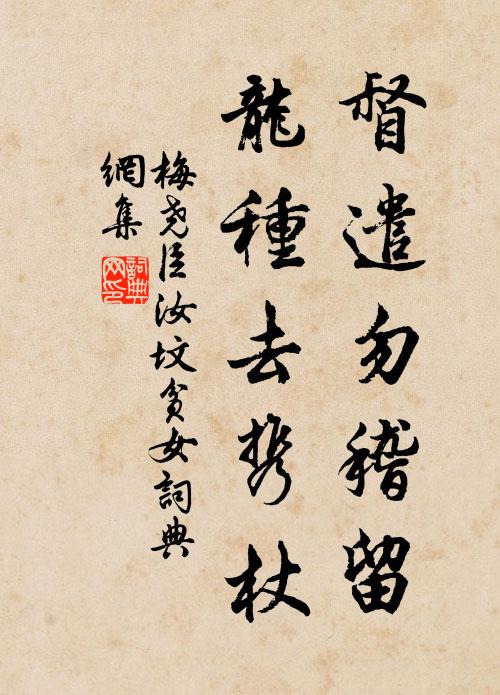 督遣勿稽留
龍種去携杖
梅堯臣汝墳貧女詞典
網集
詞典
网印